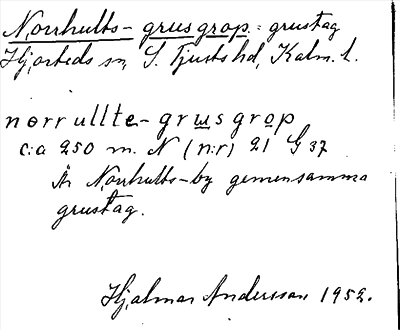 Norrhults-grusgrop: grustag
Hjorteds sn, S. Tjusts hd, Kalm. l.
norrullte-grusgrop
c:a 250 m. N (n:r) 21 G 37
Är Norrhults-by gemensamma
grustag.
Hjalmar Andersson 1952.